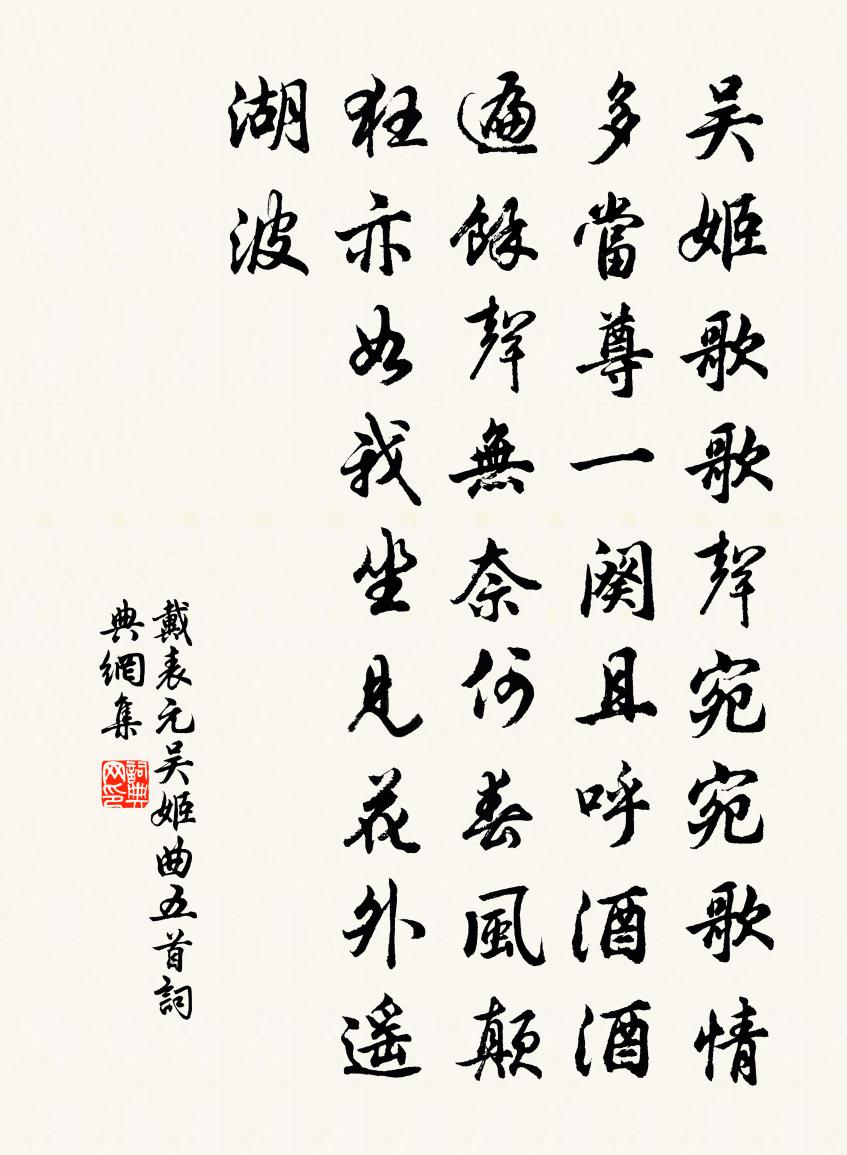 吴姬歌歌聲宛宛歌情
多當尊一阕且呼酒酒
遍餘聲無奈何春風颠
狂亦如我坐見花外遥
湖波
戴表元吴姬曲五首詞
典網集
詞典
网印